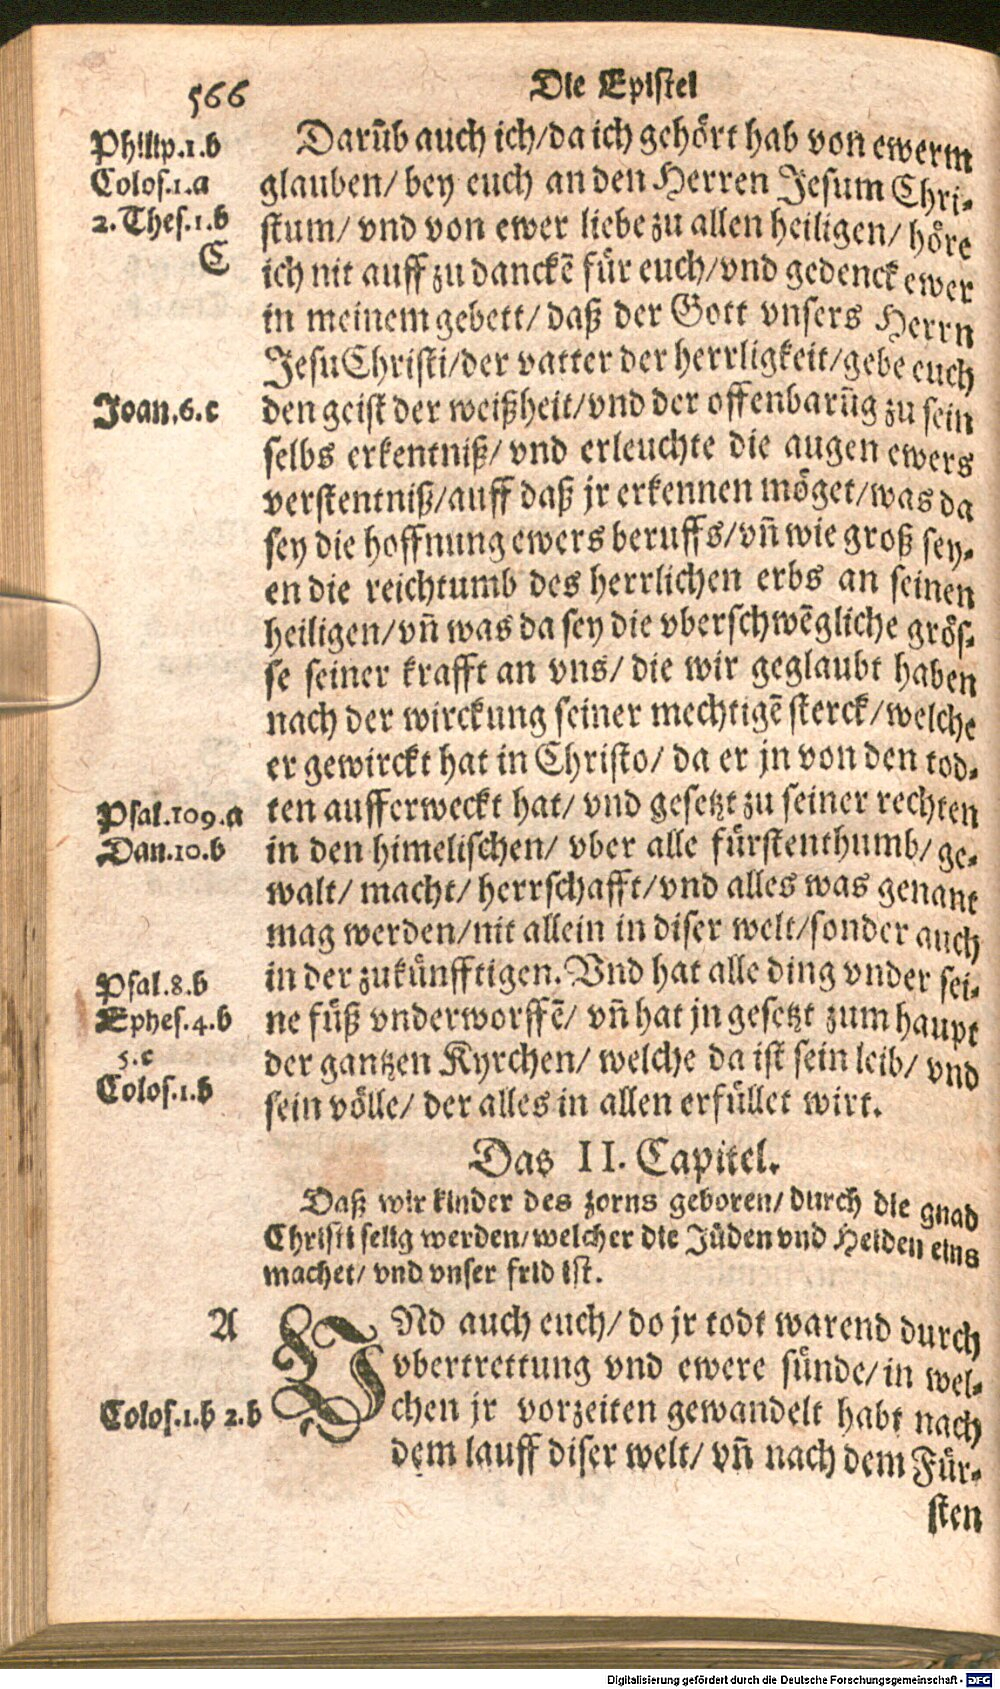 566
Die Epistel
Philip.1.b
Colos.1.a
2.Thes.1.b
C
Darūb auch ich/da ich gehört hab von ewerm
glauben/ bey euch an den Herren Jesum Chri-
stum/ vnd von ewer liebe zu allen heiligen/ höre
ich nit auff zu danckē für euch/vnd gedenck ewer
in meinem gebett/ daß der Gott vnsers Herrn
Jesu Christi/der vatter der herrligkeit/gebe euch
Joan.6.c
den geist der weißheit/vnd der offenbarūg zu sein
selbs erkentniß/ vnd erleuchte die augen ewers
verstentniß/auff daß jr erkennen möget/was da
sey die hoffnung ewers beruffs/vn̄ wie groß sey-
en die reichtumb des herrlichen erbs an seinen
heiligen/vn̄ was da sey die vberschwēgliche grös-
se seiner krafft an vns/ die wir geglaubt haben
nach der wirckung seiner mechtigē sterck/welche
er gewirckt hat in Christo/ da er jn von den tod-
Psal.109.a
ten aufferweckt hat/ vnd gesetzt zu seiner rechten
Dan.10.b
in den himelischen/ vber alle fürstenthumb/ ge-
walt/ macht/ herrschafft/vnd alles was genant
mag werden/nit allein in diser welt/sonder auch
Psal.8.b
in der zukünfftigen. Vnd hat alle ding vnder sei-
Ephes.4.b
ne füß vnderworffē/ vn̄ hat jn gesetzt zum haupt
5.c
der gantzen Kyrchen/ welche da ist sein leib/ vnd
Colos.1.b
sein völle/ der alles in allen erfüllet wirt.
Das II. Capitel.
Daß wir kinder des zorns geboren/ durch die gnad
Christi selig werden/welcher die Jüden vnd Heiden eins
machet/ vnd vnser frid ist.
A
VNd auch euch/ do jr todt warend durch
vbertrettung vnd ewere sünde/in wel-
Colos.1.b 2.b
chen jr vorzeiten gewandelt habt nach
dem lauff diser welt/ vn̄ nach dem Für-
sten
Digitalisierung gefördert durch die Deutsche Forschungsgemeinschaft - DFG